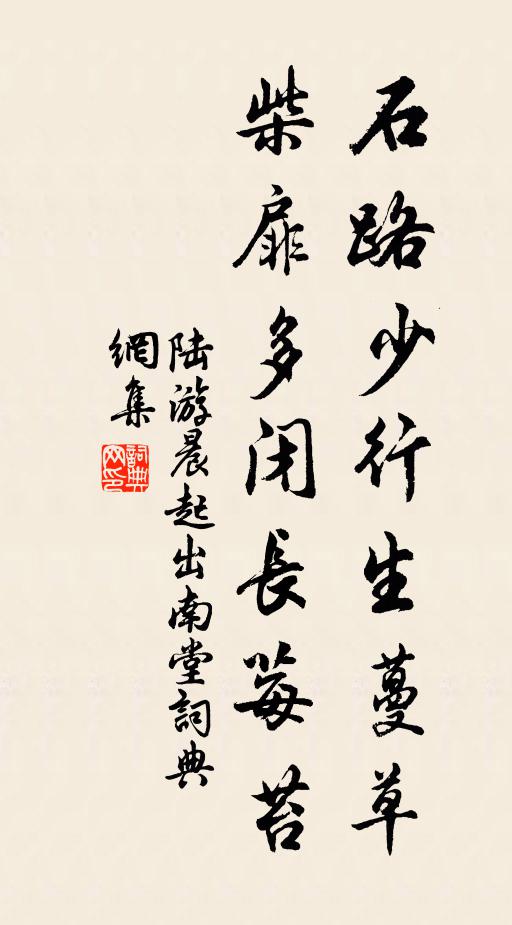 石路少行生蔓草
柴扉多闭長莓苔
陆游晨起出南堂詞典
網集
詞典网印